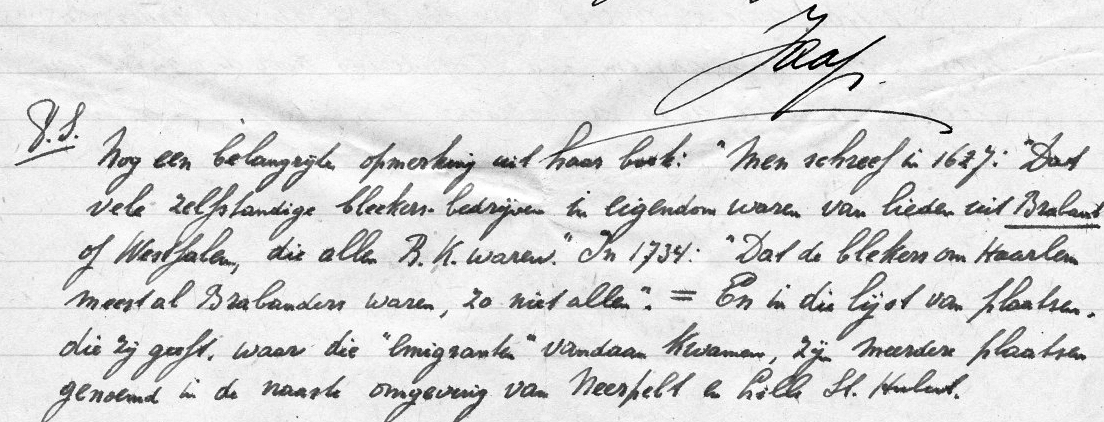 Jaap.
P.S.
Nog een belangrijke opmerking uit haar boek: "Men schreef in 1627: "Dat
vele zelfstandige bleekers-bedrijven in eigendom waren van lieden uit Brabant
of Westfalen, die allen R.K. waren." In 1734: "Dat de blekers om Haarlem
meestal Brabanders waren, zo niet allen". = En in die lijst van plaatsen.
die zij geeft. waar die "emigranten" vandaan kwamen, zijn meerdere plaatsen
genoemd in de naaste omgeving van Neerpelt en Lille St. Hubert.